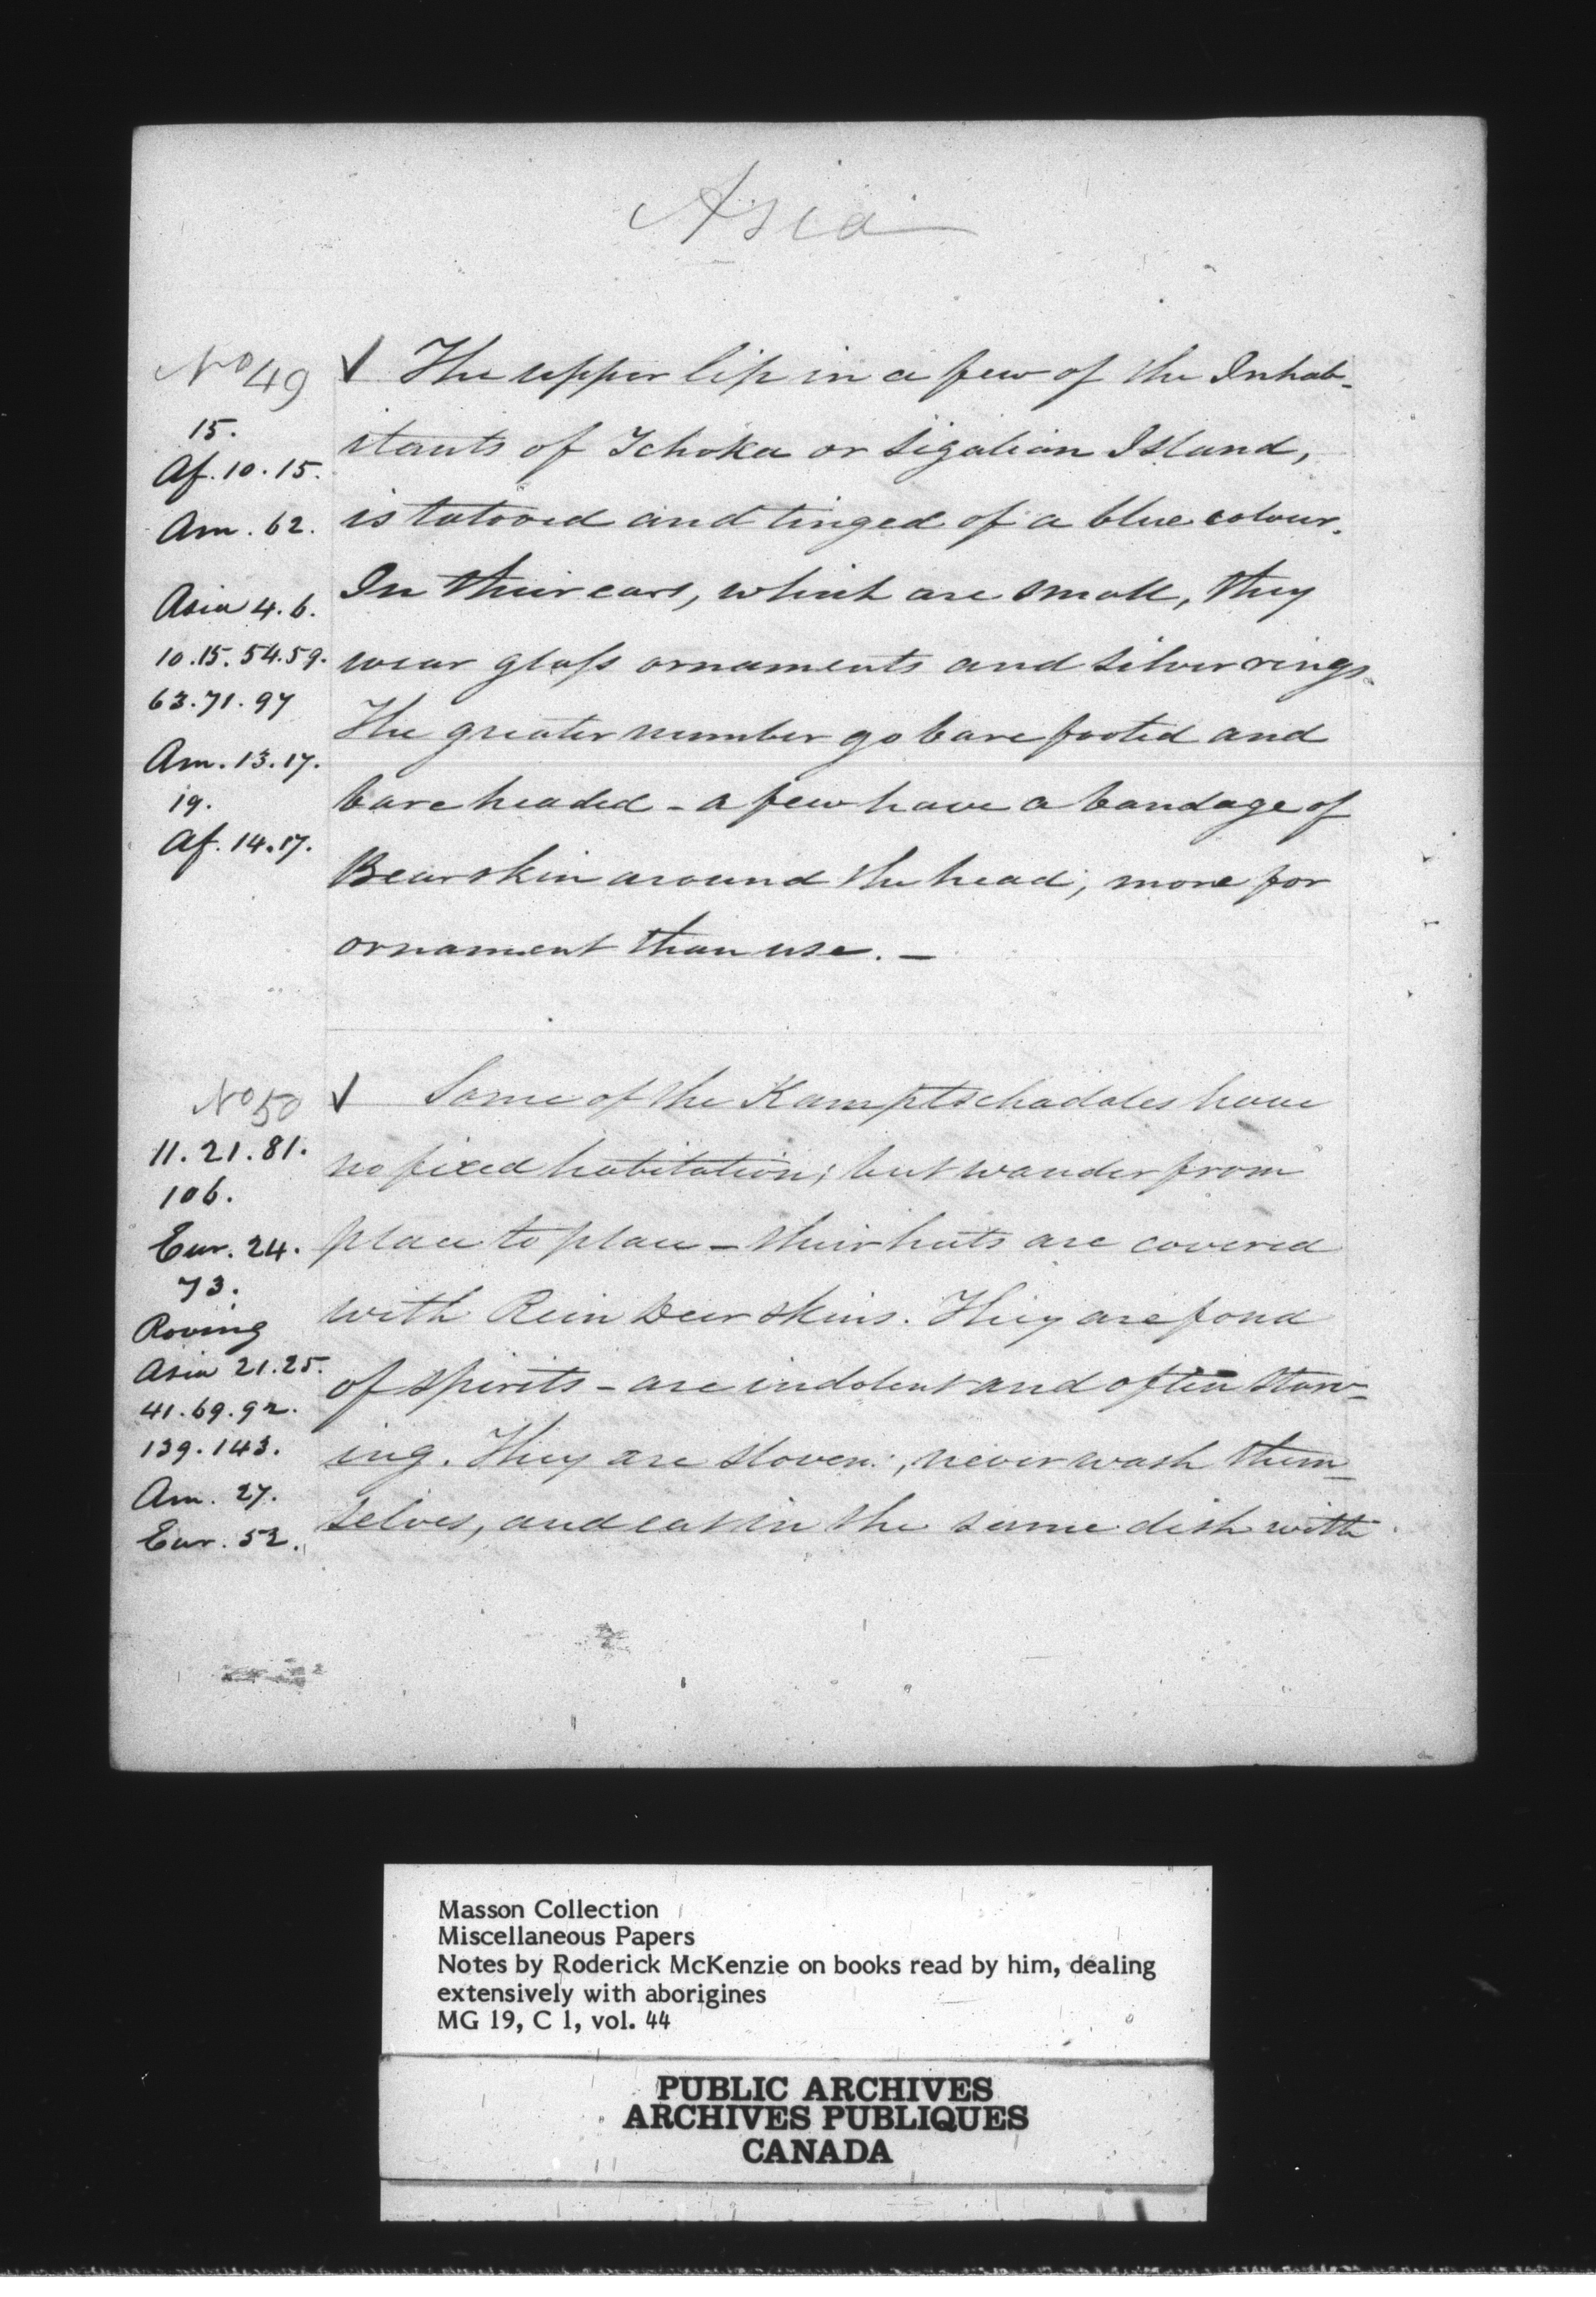 Asia
No 49
15.
Af. 10. 15.
Am. 62.
Asia 4. 6.
10. 15. 54. 59.
63. 71. 97
Am. 13. 17.
19.
Af. 14. 17.
✓ The upper lip in a few of the Inhab-
itants of Tchoka or Sigalian Island,
is tatooed and tinged of a blue colour.
In their ears, which are small, they
wear glass ornaments and silver rings.
The greater number go bare footed and
bare headed - a few have a bandage of
Bearskin around the head; more for
ornament than use. —
No 50
11. 21. 81.
106.
Eur. 24.
73.
Roving
Asia 21. 25.
41. 69. 92.
139. 143.
Am. 27.
Eur. 52.
✓ Some of the Kamptschadales have
no fixed habitation; but wander from
place to place - their huts are covered
with Rein Deer skins. They are fond
of spirits - are indolent and often starv-
ing. They are sloven:, never wash them-
selves, and eat in the same dish with
Masson Collection
Miscellaneous Papers
Notes by Roderick McKenzie on books read by him, dealing
extensively with aborigines
MG 19, C 1, vol. 44
PUBLIC ARCHIVES
ARCHIVES PUBLIQUES
CANADA